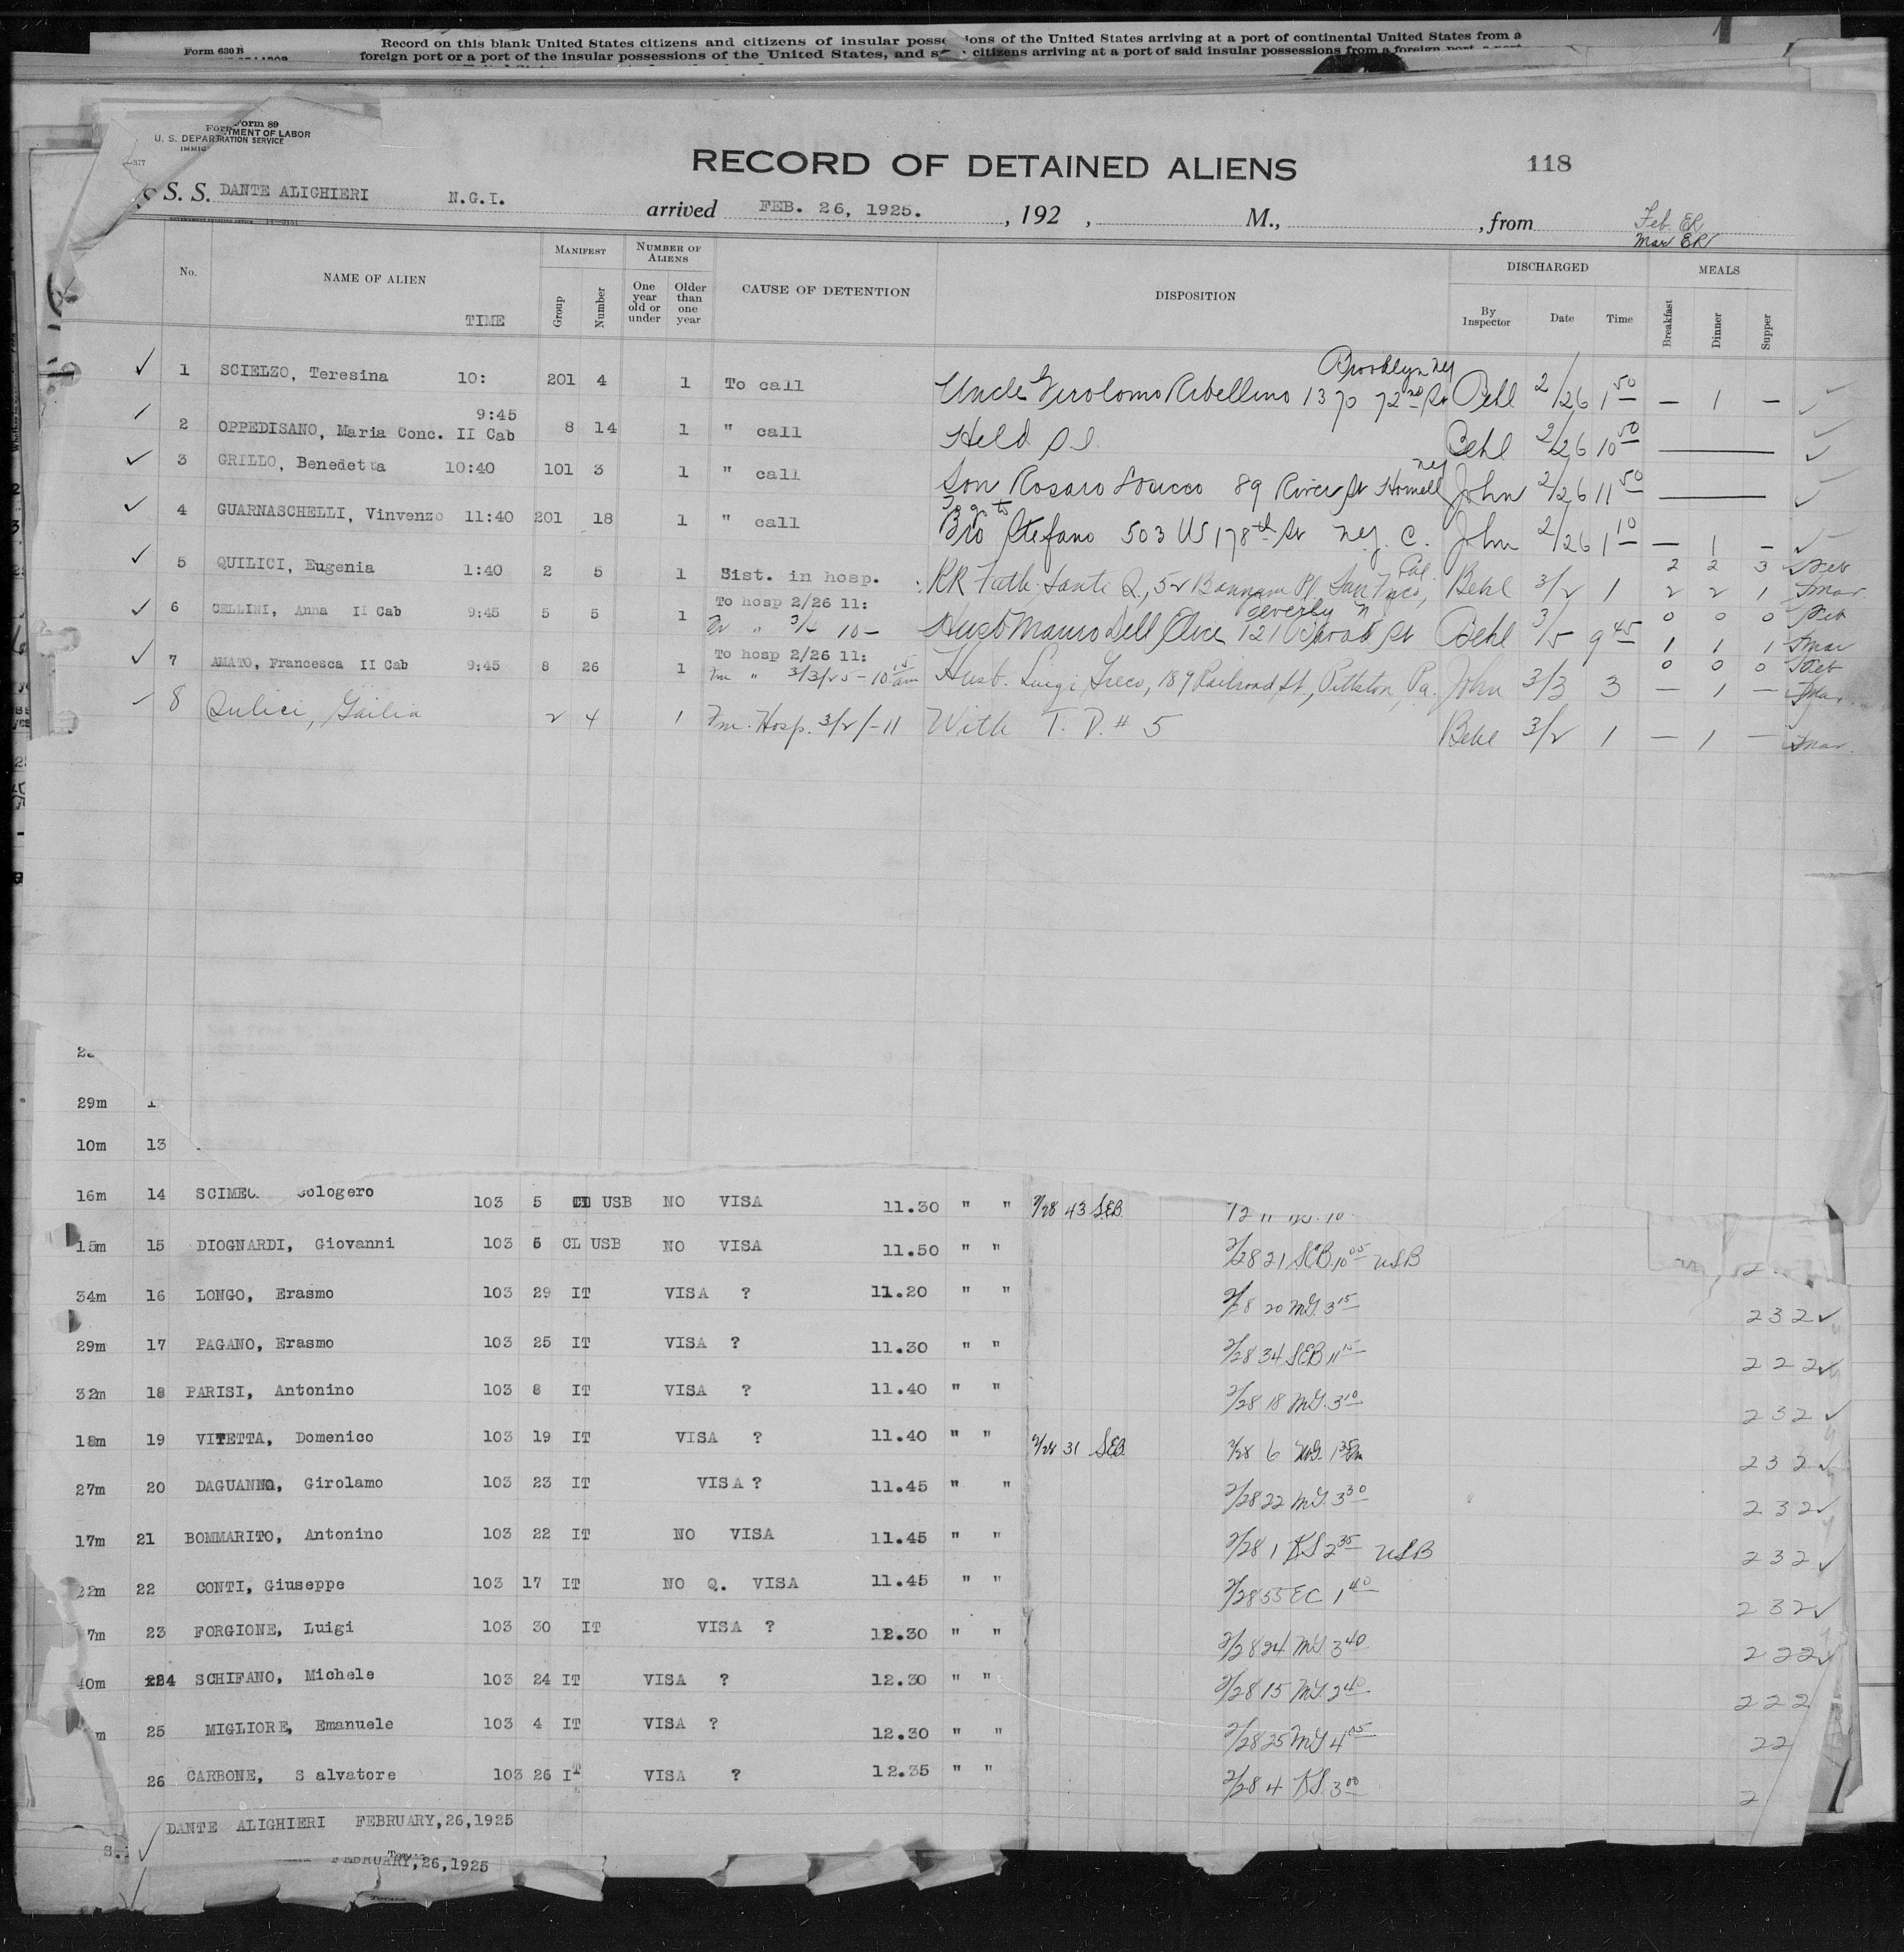 Form 630 B
Record on this blank United States citizens and citizens of insular possessions of the United States arriving at a port of continental United States from a
foreign port or a port of the insular possessions of the United States, and citizens arriving at a port of said insular possessions from a foreign port
Form 89
U. S. DEPARTMENT OF LABOR
RECORD OF DETAINED ALIENS 118
S. S. DANTE ALIGHIERI N.G.I. arrived FEB. 26, 1925. , 192 , M., , from Feb. ER
Mar ER
No. NAME OF ALIEN TIME MANIFEST Group Number NUMBER OF ALIENS One year old or under Older than one year CAUSE OF DETENTION DISPOSITION DISCHARGED By Inspector Date Time MEALS Breakfast Dinner Supper
1 SCIELZO, Teresina 10: 201 4 1 To call Uncle Girolomo Ribellino 1370 72nd St Brooklyn NY Behl 2/26 1 50 — 1 —
2 OPPEDISANO, Maria Conc. II Cab 9:45 8 14 1 " call Held S I. Behl 2/26 10 50
3 GRILLO, Benedetta 10:40 101 3 1 " call Son Rosaro 89 River St Hornell NY John 2/26 11 50
4 GUARNASCHELLI, Vinvenzo 11:40 201 18 1 " call Bro Stefano 503 W 178th St N.Y. C. John 2/26 1 10 — 1 —
5 QUILICI, Eugenia 1:40 2 5 1 Sist. in hosp. RR Fath. Sante Q., 52 Bannam Pl, San Fsco, Cal. Behl 3/2 1 2 2 3 Feb
2 2 1 Mar.
6 CELLINI, Anna II Cab 9:45 5 5 1 To hosp 2/26 11: Husb Mauro Dell 121 St Behl 3/5 9 45 0 0 0 Feb
" 3/4 10 — 1 1 1 Mar
7 AMATO, Francesca II Cab 9:45 8 26 1 To hosp 2/26 11: Husb. Luigi Greco, 189 Railroad St., Pittston, Pa. John 3/3 3 0 0 0 Feb
Fm " 3/3/25 - 10 15 am — 1 — Mar.
8 Qulici, Gailia 2 4 1 Fm. Hosp. 3/2/-11 With T. D. # 5 Behl 3/2 1 — 1 — Mar.
29m
10m 13
16m 14 SCIMEC ologero 103 5 USB NO VISA 11.30 " " 2/28 43 SEB
15m 15 DIOGNARDI, Giovanni 103 6 CL USB NO VISA 11.50 " " 2/28 21 SEB. 10 05 USB
34m 16 LONGO, Erasmo 103 29 IT VISA ? 11.20 " " 2/28 20 MG. 3 15 2 3 2
29m 17 PAGANO, Erasmo 103 25 IT VISA ? 11.30 " " 2/28 34 SEB 11 15 2 2 2
32m 18 PARISI, Antonino 103 8 IT VISA ? 11.40 " " 2/28 18 MG. 3 10 2 3 2
18m 19 VITETTA, Domenico 103 19 IT VISA ? 11.40 " " 2/28 31 SEB 2/28 6 MG. 1 35 2 3 2
27m 20 DAGUANNO, Girolamo 103 23 IT VISA ? 11.45 " " 2/28 22 MG. 3 30 2 3 2
17m 21 BOMMARITO, Antonino 103 22 IT NO VISA 11.45 " " 2/28 1 KS 2 35 USB 2 3 2
22m 22 CONTI, Giuseppe 103 17 IT NO Q. VISA 11.45 " " 2/28 55 EC 1 40 2 3 2
7m 23 FORGIONE, Luigi 103 30 IT VISA ? 12.30 " " 2/28 24 MG 3 40 2 2 2
40m 24 SCHIFANO, Michele 103 24 IT VISA ? 12.30 " " 2/28 15 MG. 2 40 2 2 2
m 25 MIGLIORE, Emanuele 103 4 IT VISA ? 12.30 " " 2/28 25 MG 4 05 2 2
26 CARBONE, S alvatore 103 26 IT VISA ? 12.35 " " 2/28 4 KS. 3 00 2
DANTE ALIGHIERI FEBRUARY,26,1925
FEBRUARY,26,1925